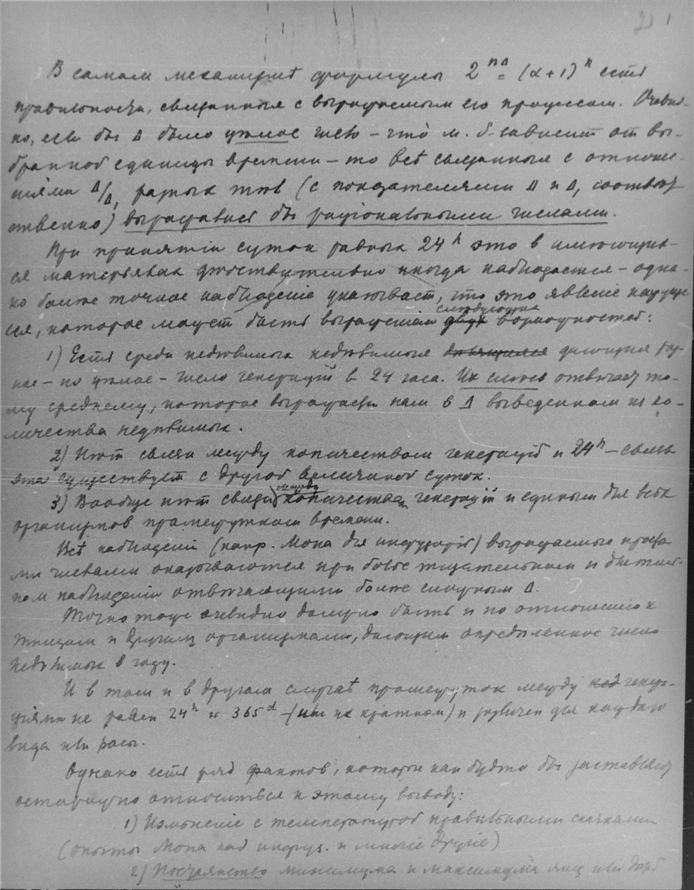 В самом механизме формулы 2^nΔ = (α+1)^n есть
правильность, связанная с выражаемым его процессом. Очевид-
но, если бы Δ было целое число – что м. б. зависит от вы-
бранной единицы времени – то всѣ связанныя с отноше-
ниями Δ/Δ₁ разных (с показателями Δ и Δ₁ соответ-
ственно) выражались бы раціональными числами.
При принятіи суток равных 24h это в имеющих-
ся матерьялах действительно иногда наблюдается – одна-
ко более точное наблюденіе указывает, что это явленіе наруше-
ся, которое может быть выражением следующих возможностей:
1) Есть среди неделимых неделимыя дающія раз-
ное – но целое – число генерацій в 24 часа. Их отвечает то-
му среднему, которое выражается нам в Δ выведенном из ко-
личества неделимых.
2) Нѣт связи между количеством генерацій и 24h – связь
эта существует с другой величиной суток.
3) Вообще нѣт связи между количеством генерацій и единым для всех
организмов промежутком времени.
Всѣ наблюденія (напр. Мопа для инфузорій) выражаемыя
ми числами оказываются при более тщательном и
ном наблюденіи отвечающими более сложным Δ.
Точно тоже очевидно должно быть и по отношенію к
птицам и другим организмам, дающим определенное число
неделимых в году.
И в том и в другом случаѣ промежуток между генера-
ціями не равен 24h и 365d – (или их кратном) и различен для каждаго
вида или расы.
Однако есть ряд фактов, которые как будто бы заставляют
осторожно относиться к этому выводу:
1) Измѣненіе с температурой правильными скачками
(опыты Мопа над инфуз. и многіе другіе)
2) Постоянство минимума и максимума яиц или